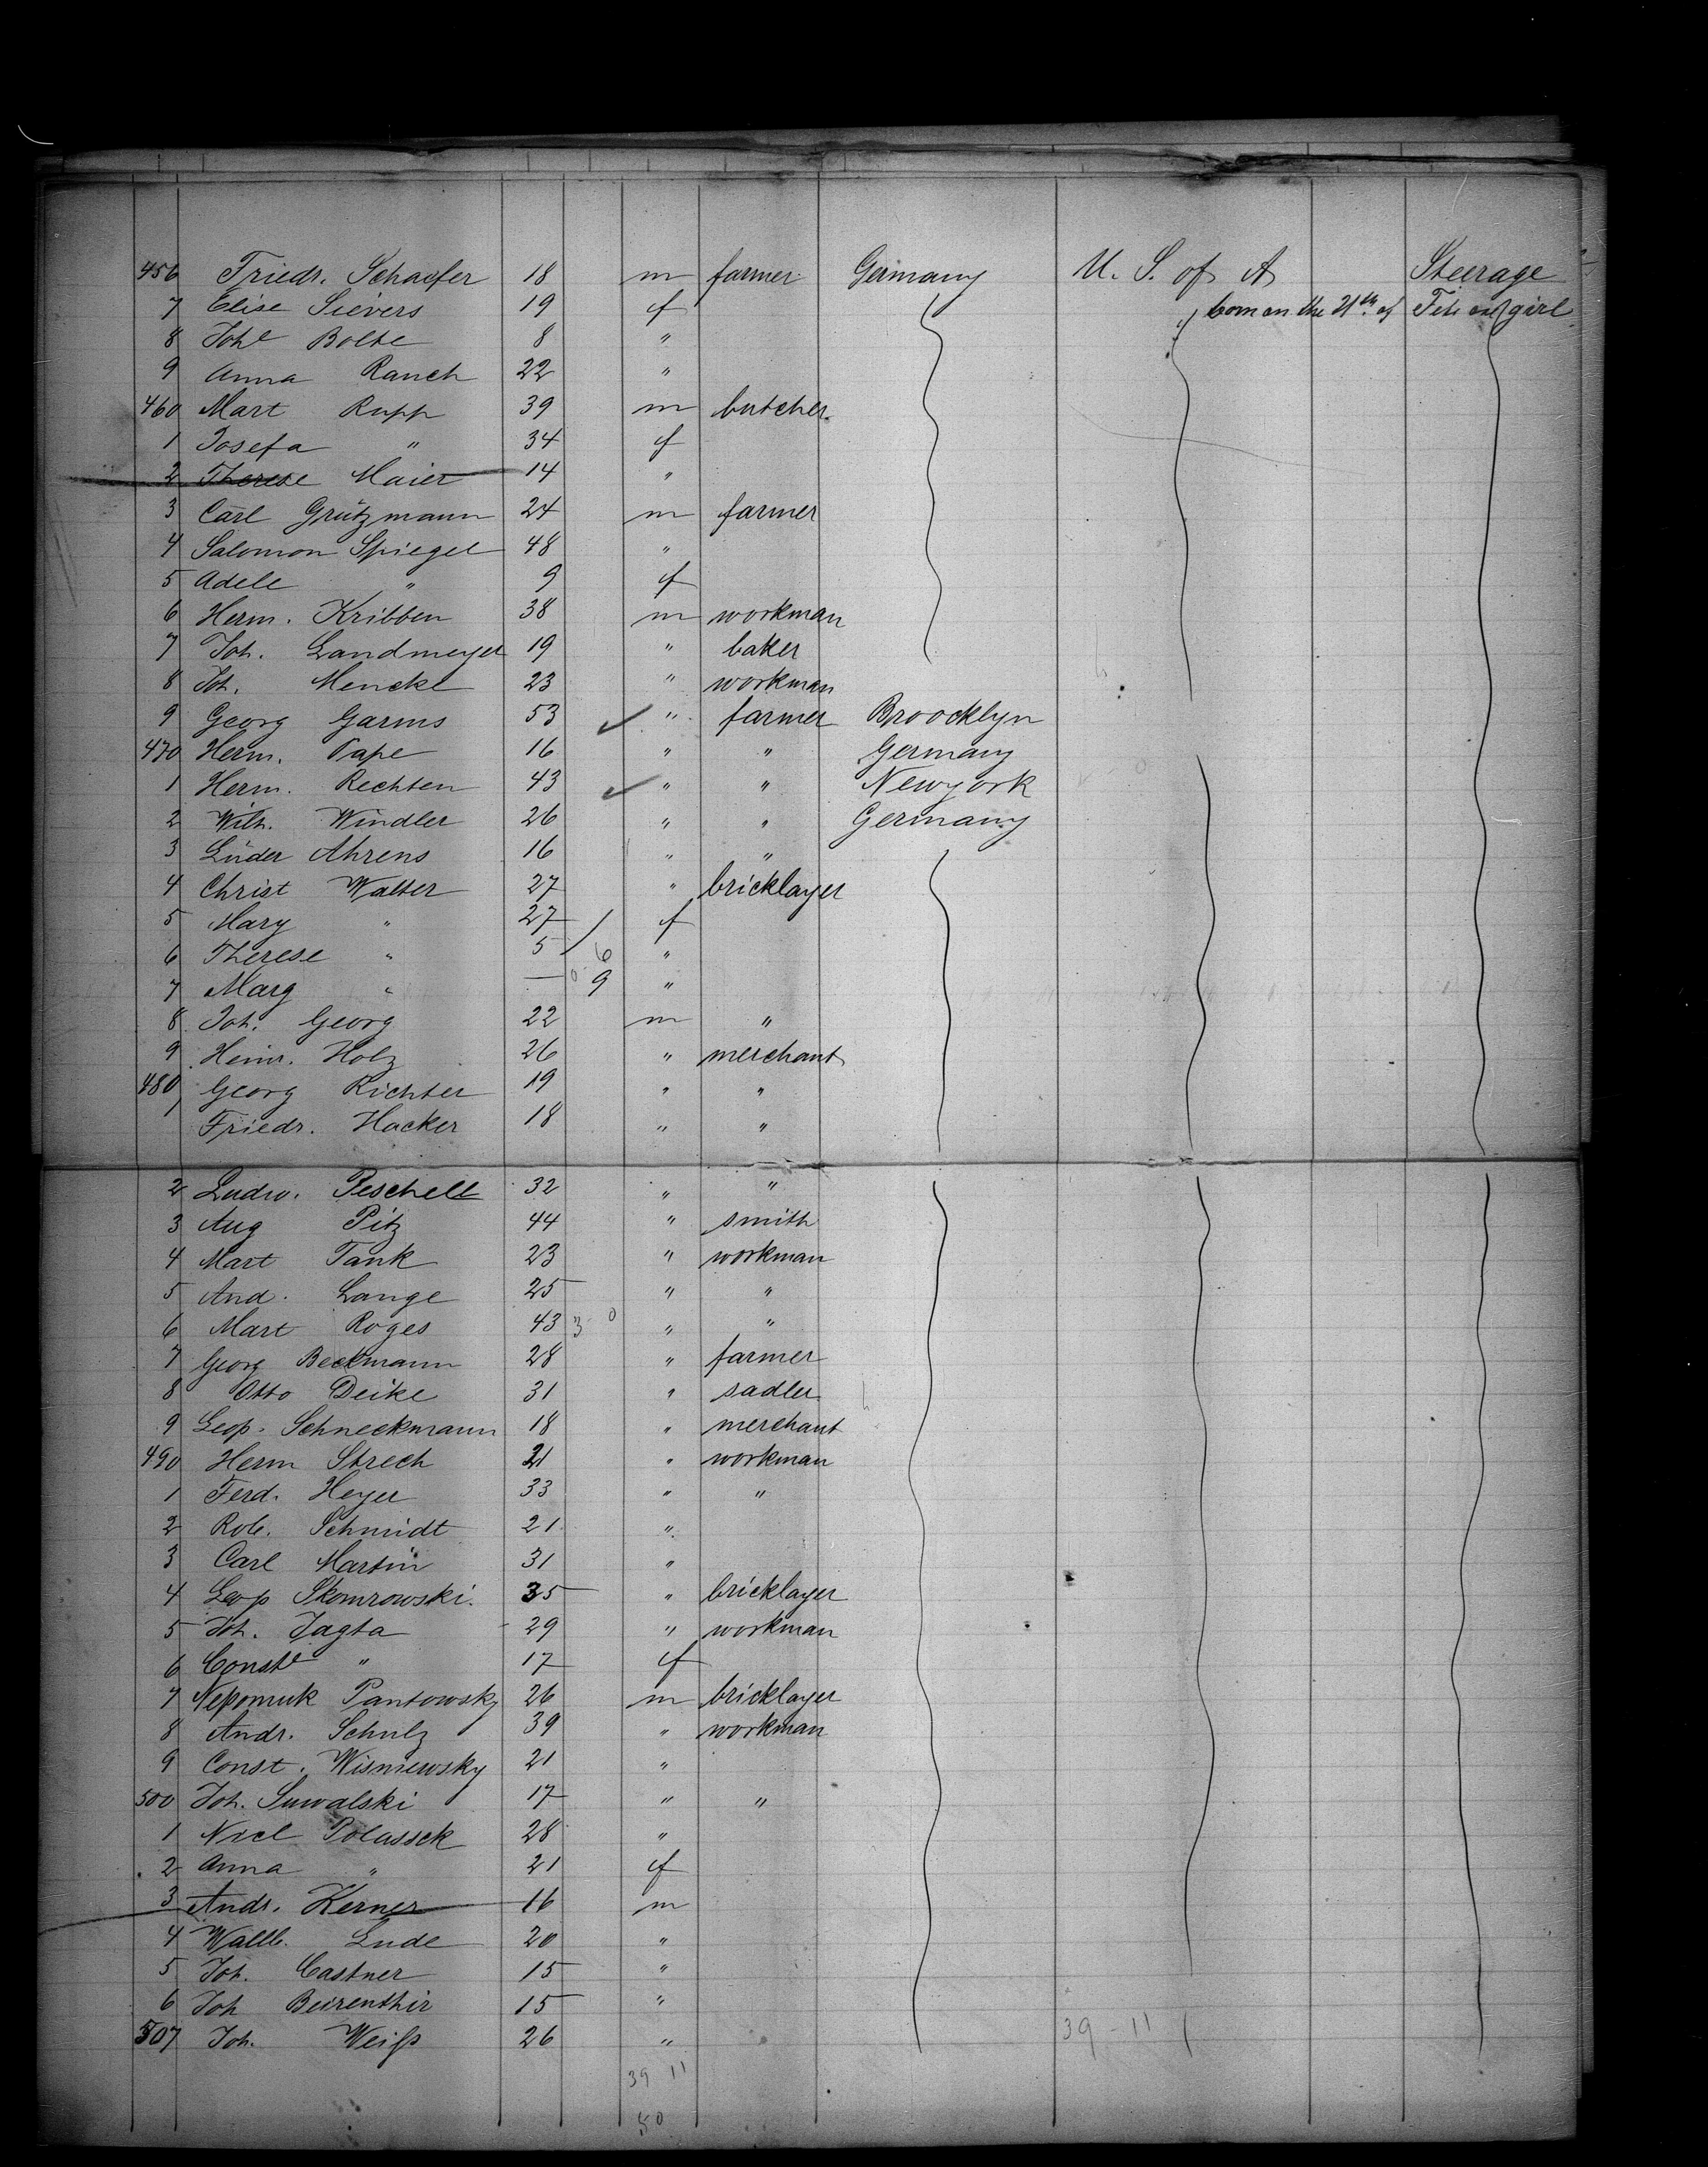 456 Friedr. Schaefer 18 m farmer Germany U. S. of A Steerage
7 Elise Sievers 19 f " born on the 21th of Feb. a girl
8 Johe Bolte 8 "
9 Anna Rauch 22 "
460 Mart Rupp 39 m butcher
1 Josefa " 34 f
2 Therese Maier 14 "
3 Carl Grützmann 24 m farmer
4 Salomon Spiegel 48 "
5 Adele " 9 f
6 Herm. Kribben 38 m workman
7 Joh. Landmeyer 19 " baker
8 Joh. Mencke 23 " workman
9 Georg Garms 53 ✓ " farmer Broocklyn
470 Herm. Pape 16 " " Germany
1 Herm. Rechten 43 ✓ " " Newyork
2 Wilh. Windler 26 " " Germany
3 Lüder Ahrens 16 " "
4 Christ Walter 27 " bricklayer
5 Mary " 27 f
6 Therese " 5 6 "
7 Marg " — 9 "
8 Joh. Georg 22 m "
9 Heinr. Holz 26 " merchant
480 Georg Richter 19 " "
1 Friedr. Hacker 18 " "
2 Ludw. Peschell 32 " "
3 Aug Pitz 44 " smith
4 Mart Tank 23 " workman
5 And. Lange 25 " "
6 Mart Roges 43 3 0 " "
7 Georg Beckmann 28 " farmer
8 Otto Deike 31 " sadler
9 Leop. Schneckmann 18 " merchant
490 Herm Strech 21 " workman
1 Ferd. Heyer 33 " "
2 Rob. Schmidt 21 "
3 Carl Martin 31 "
4 Leop Skomrowski. 35 " bricklayer
5 Joh. Jagta 29 " workman
6 Conste " 17 f
7 Nepomuk Pantowsky 26 m bricklayer
8 Andr. Schulz 39 " workman
9 Const. Wisniewsky 21 "
500 Joh. Suwalski 17 " "
1 Nicl Polassek 28 "
2 Anna " 21 f
3 Andr. Kerner 16 m
4 Wallb. Lude 20 "
5 Joh. Castner 15 "
6 Joh Beirenthir 15 "
507 Joh. Weiß 26 "
39 - 11
39 11
50